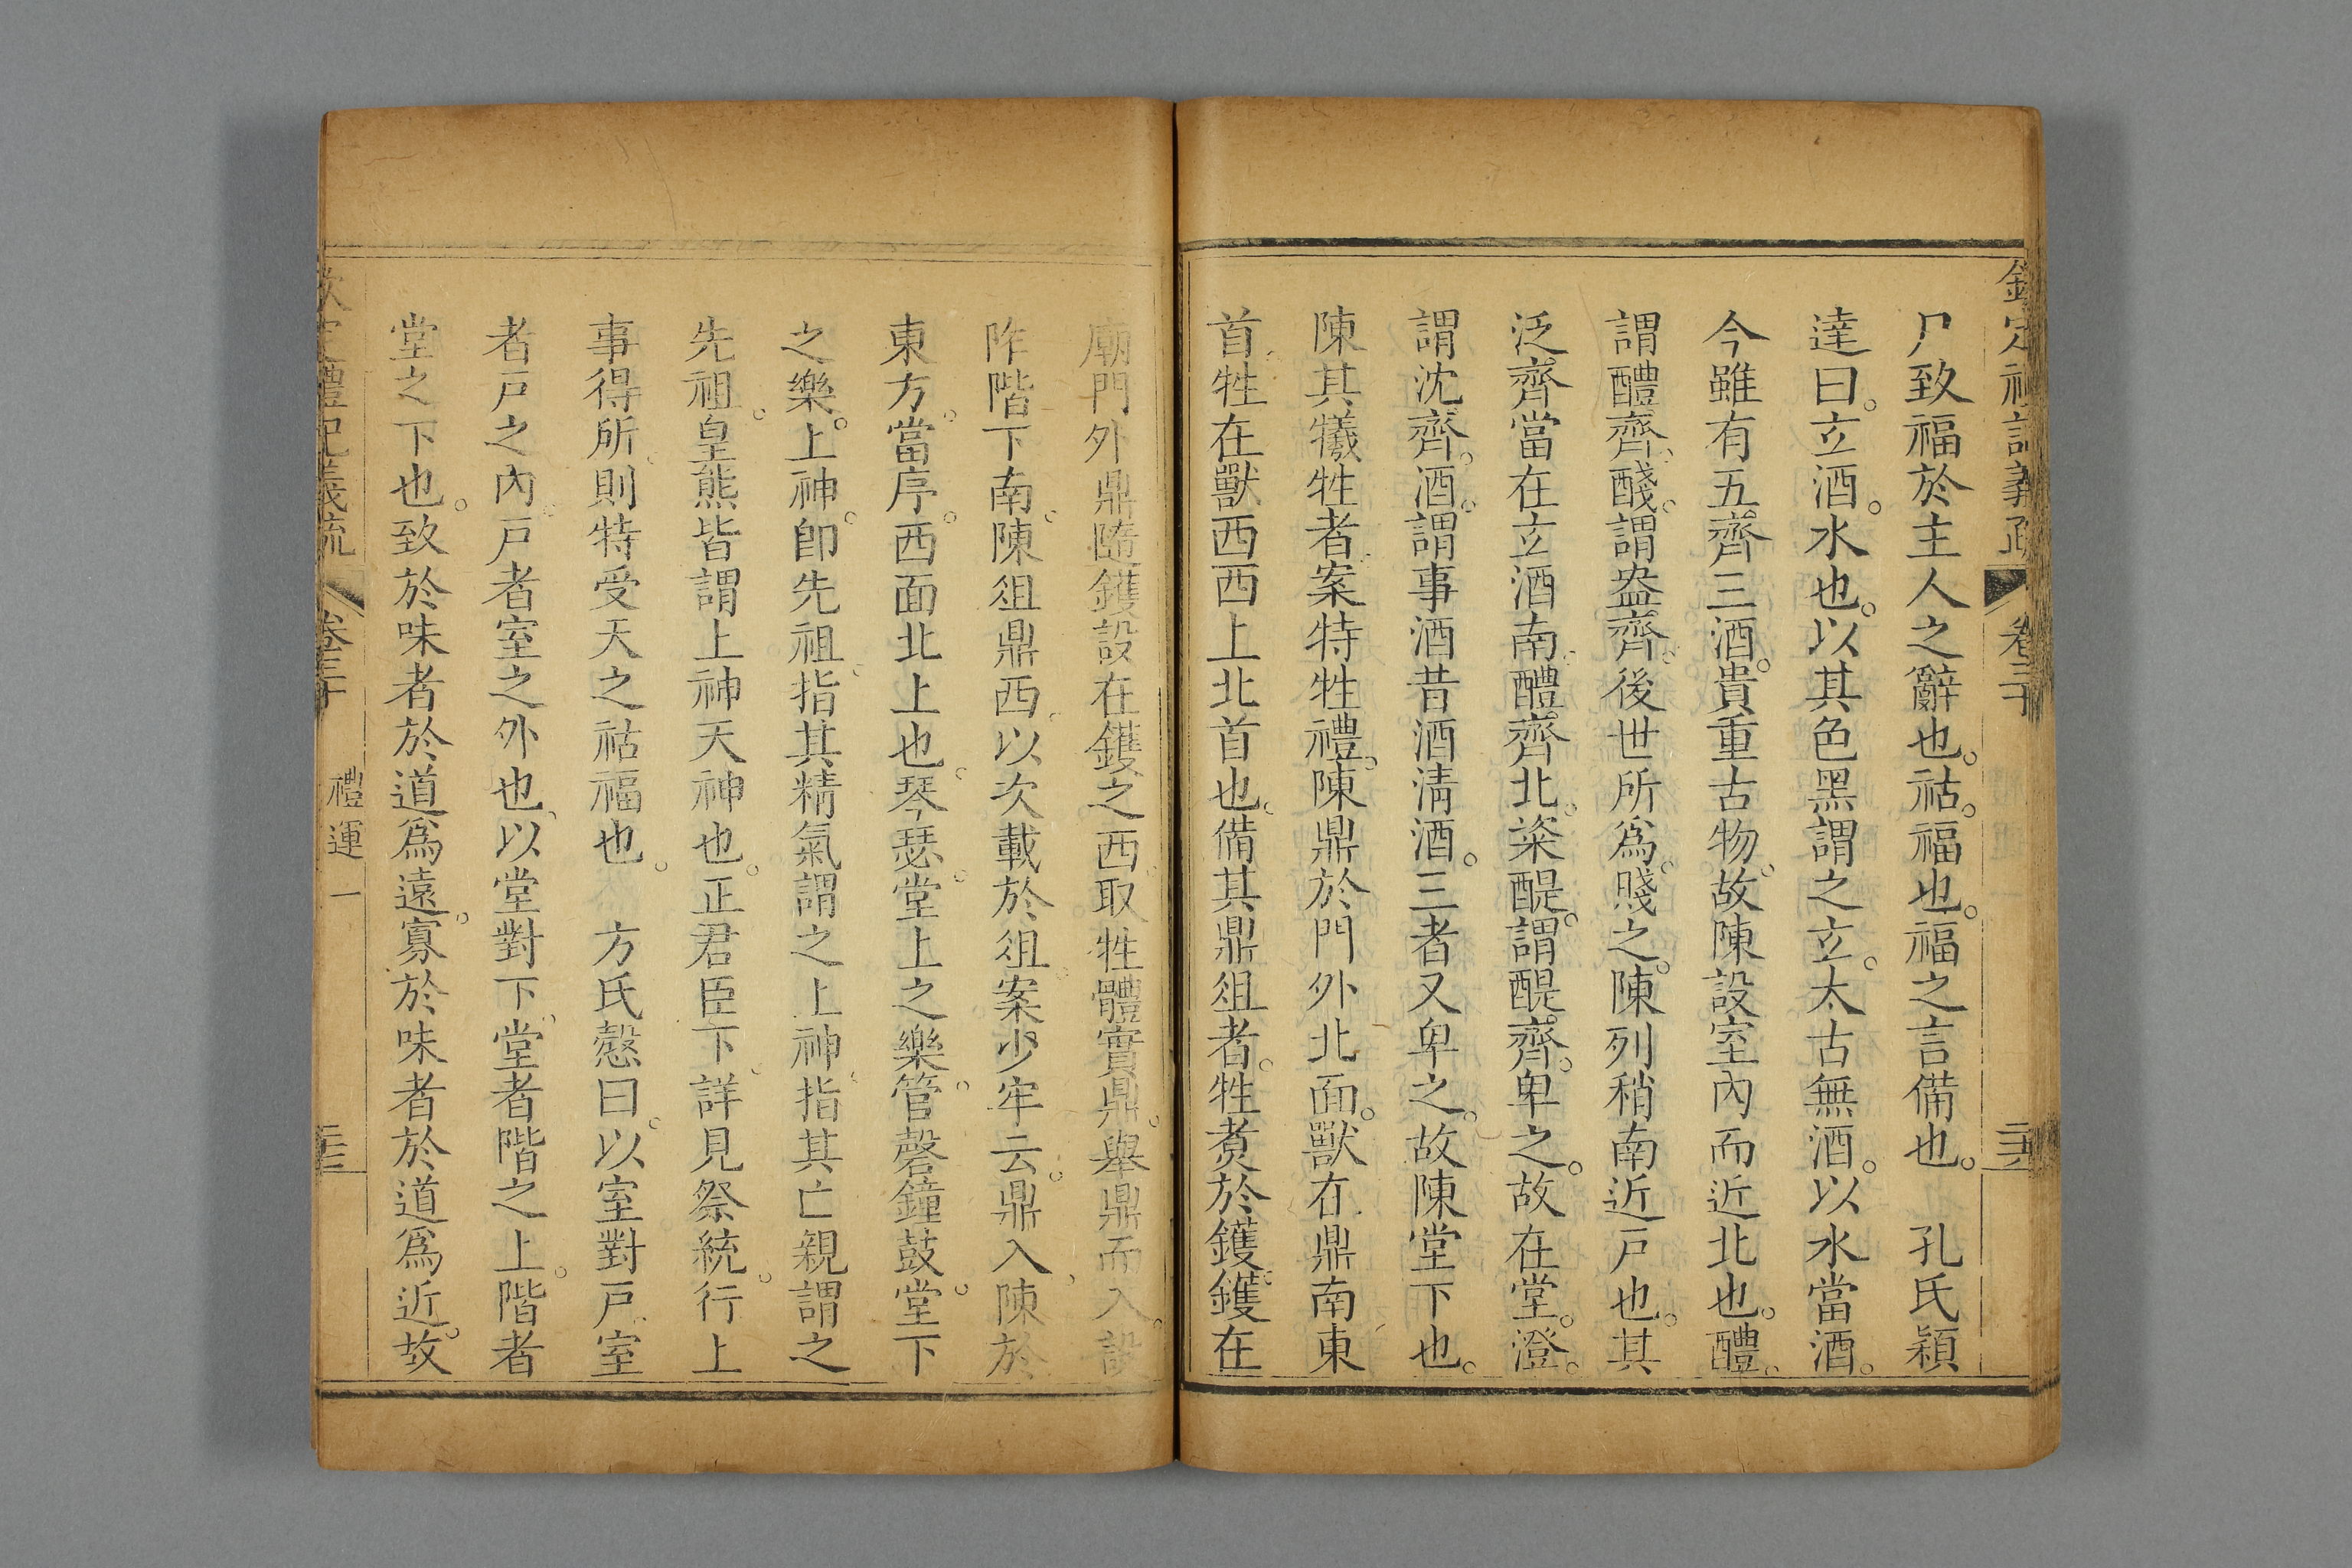 欽定禮記義疏 卷三十
尸致福於主人之辭也。祜。福也。福之言備也。 孔氏穎
達曰。立酒。水也。以其色黑謂之立。太古無酒。以水當酒。
今雖有五齊三酒。貴重古物。故陳設室內而近北也。醴。
謂醴齊。醆。謂盎齊。後世所爲。賤之。陳列稍南近戸也。其
泛齊當在立酒南。醴齊北。粢醍。謂醍齊。卑之。故在堂。澄。
謂沈齊。酒。謂事酒昔酒淸酒。三者又卑之。故陳堂下也。
陳其犧牲者。案特牲禮。陳鼎於門外北面。獸在鼎南東
首。牲在獸西西上北首也。備其鼎俎者。牲煑於鑊。鑊在
廟門外。鼎隨鑊設。在鑊之西。取牲體實鼎。舉鼎而入。設
阼階下南。陳俎鼎西。以次載於俎。案少牢云。鼎入陳於
東方。當序。西面北上也。琴瑟。堂上之樂。管磬鐘鼓。堂下
之樂。上神。卽先祖。指其精氣謂之上神。指其亡親謂之
先祖。皇熊皆謂上神天神也。正君臣下。詳見祭統。行上
事得所。則特受天之祜福也。 方氏慤曰。以室對戸。室
者戸之內。戸者室之外也。以堂對下。堂者階之上。階者
堂之下也。致於味者於道爲遠。寡於味者於道爲近。故
欽定禮記義疏 卷三十 禮運一